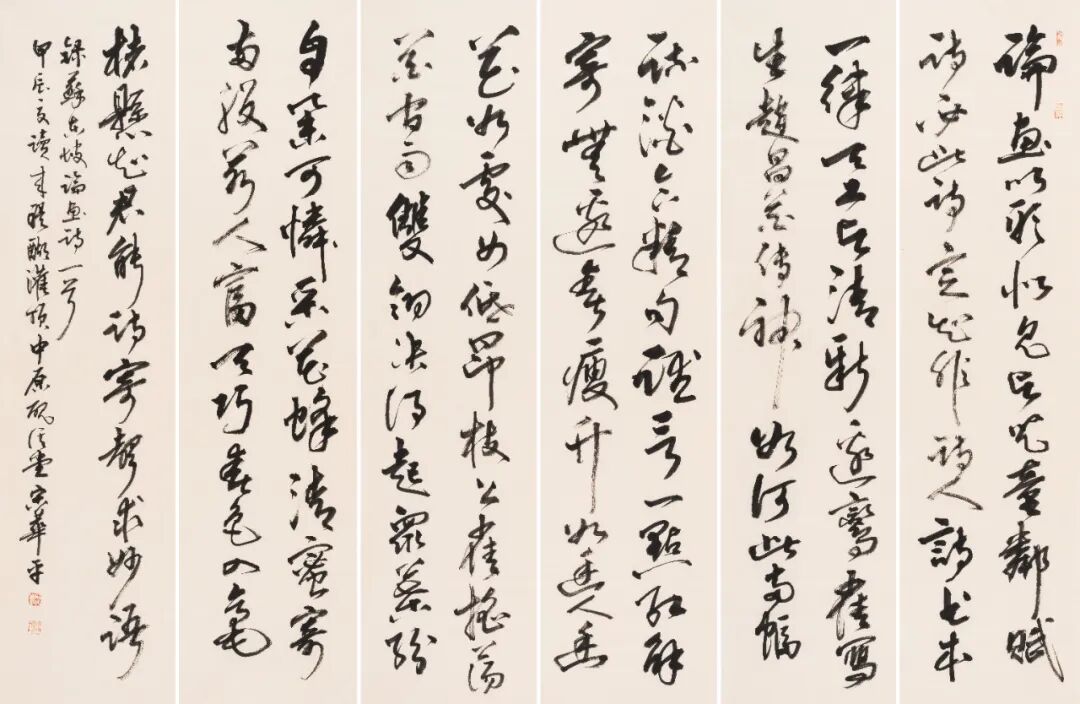 論畫以形似見與兒童鄰賦
詩必此詩定知非詩人詩畫本
一律天工與清新邊鸞雀寫
生趙昌花傳神如何此兩幅
疏澹含精勻誰言一點紅解
寄無邊春瘦竹如幽人幽
花如處女低昂枝上雀搖蕩
花間雨雙翎決將起眾葉紛
自舉可憐采花蜂清蜜寄
兩股若人富天巧春色入毫
楮懸知君能詩寄聲求妙語
錄蘇東坡論畫詩一首
甲辰夏讀來醍醐灌頂中原堂宋華平